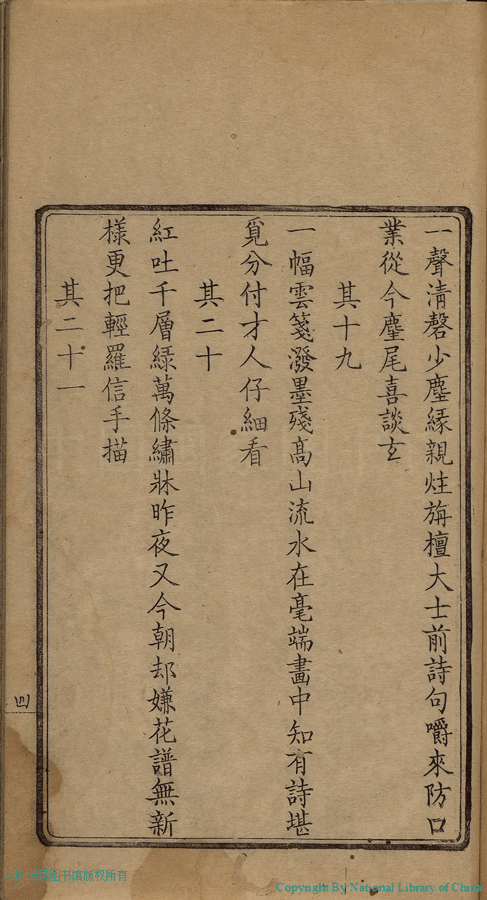 一聲清磬少塵緣親炷旃檀大士前詩句嚼來防口
業從今麈尾喜談玄
其十九
一幅雲箋潑墨殘高山流水在毫端畫中知有詩堪
覓分付才人仔細看
其二十
紅吐千層綠萬條繡牀昨夜又今朝却嫌花譜無新
樣更把輕羅信手描
其二十一
四
书馆版权所有
Copyright By National Library of China